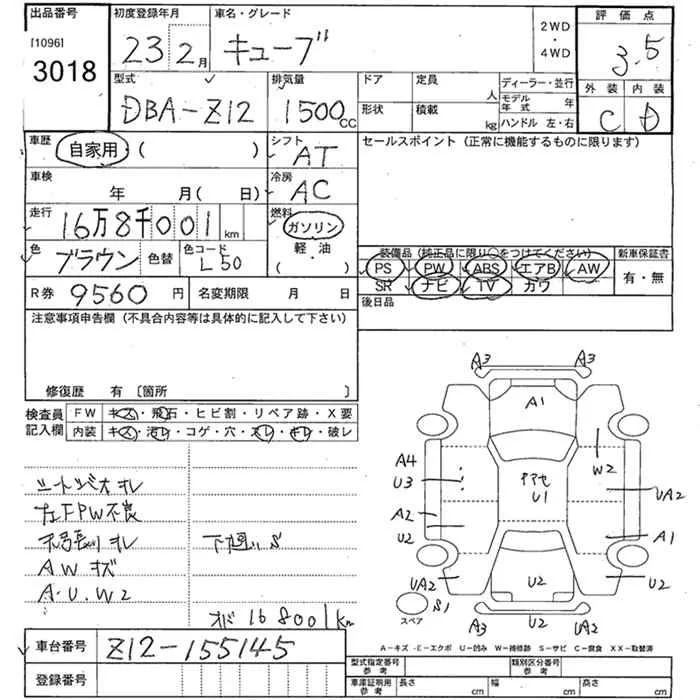 出品番号 初度登録年月 車名・グレード 2WD・4WD 評価点
[1096] 3018 23 2月 キューブ 3.5
型式 排気量 ドア 定員 人 ディーラー・並行 外装 内装
DBA-Z12 1500CC 形状 積載 kg モデル年式 年 ハンドル 左・右 C D
車歴 自家用 ( ) シフト AT セールスポイント (正常に機能するものに限ります)
車検 年 月( 日) 冷房 AC
走行 16万8千001km 燃料 ガソリン
色 ブラウン 色替 色コード L50 軽・油 ( ) 装備品 (純正品に限り○をつけてください) 新車保証書
PS PW ABS エアB AW 有・無
SR ナビ TV カワ
R券 9560円 名変期限 月 日 後日品
注意事項申告欄 (不具合内容等は具体的に記入して下さい)
修復歴 有 〔箇所 〕
検査員記入欄 FW キズ・飛石・ヒビ割・リペア跡・X要
内装 キズ・汚レ・コゲ・穴・スレ・キレ・破レ
左FPW不良
下廻りS
AWキズ
A.U.W2
168001km
A3 A3
A1
A4
U3
W2
UA2
A2
U2
U1
A1
UA2
U2
U2
スペア S1
A3 U2 UA2
A-キズ E-エクボ U-凹み W-補修跡 S-サビ C-腐食 XX-取替済
車台番号 Z12-155145
登録番号
型式指定番号 参考 類別区分番号 参考
車庫証明用 参考 長さ cm 幅 cm 高さ cm